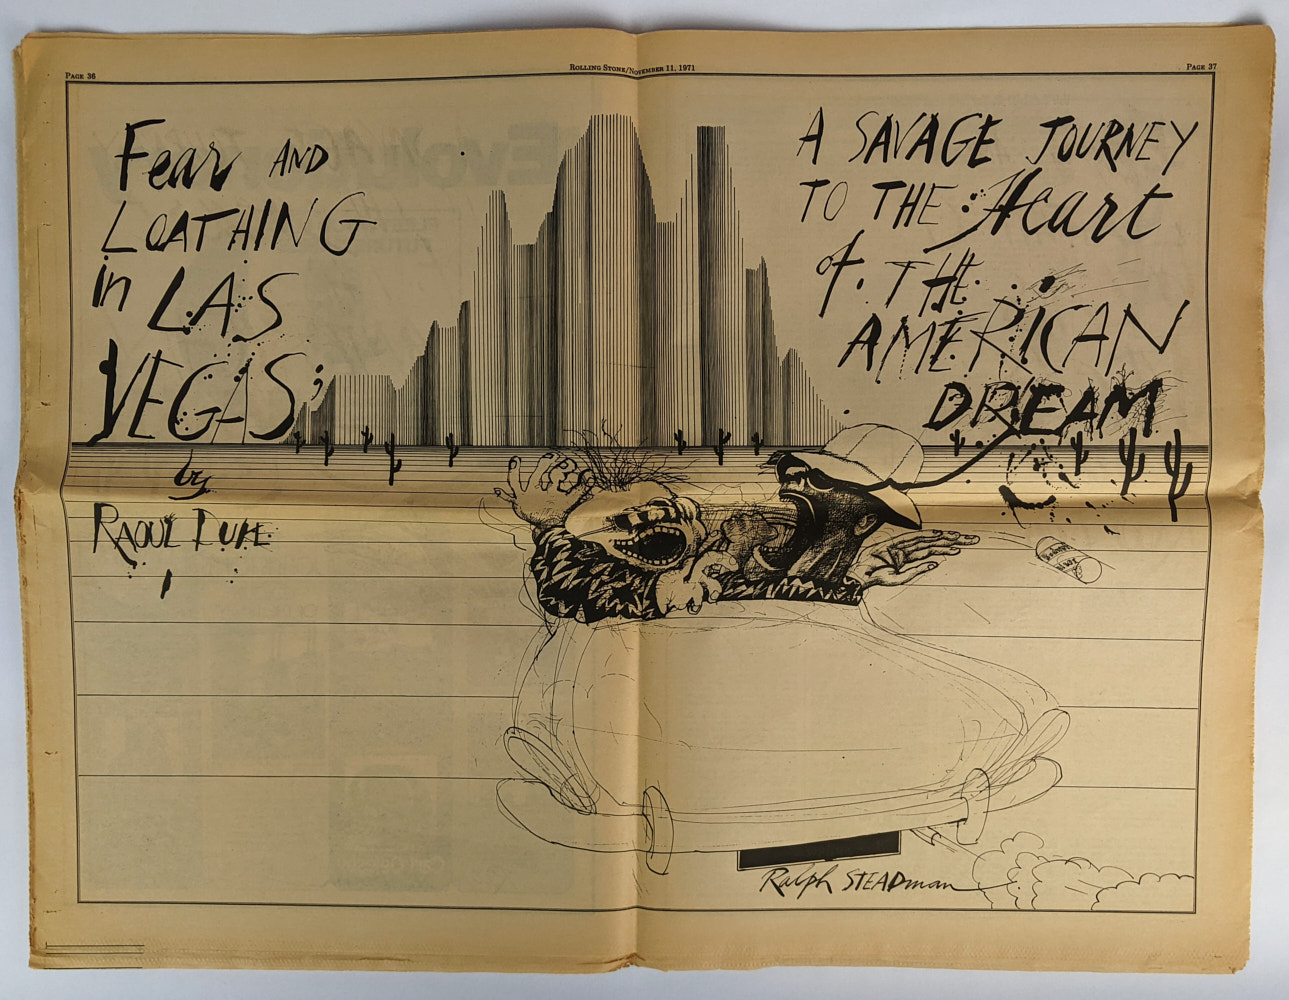 PAGE 36
ROLLING STONE/NOVEMBER 11, 1971
PAGE 37
Fear AND
LOATHING
in LAS
VEGAS;
by
RAOUL DUKE
A SAVAGE JOURNEY
TO THE Heart
of. THE
AMERICAN
DREAM
Ralph STEADman